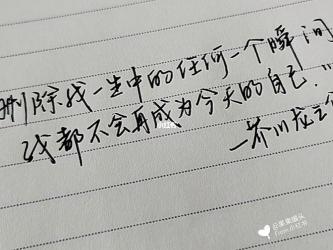 删除我一生中的任何一个瞬间
我都不会再成为今天的自己."
—芥川龙之介
小红书